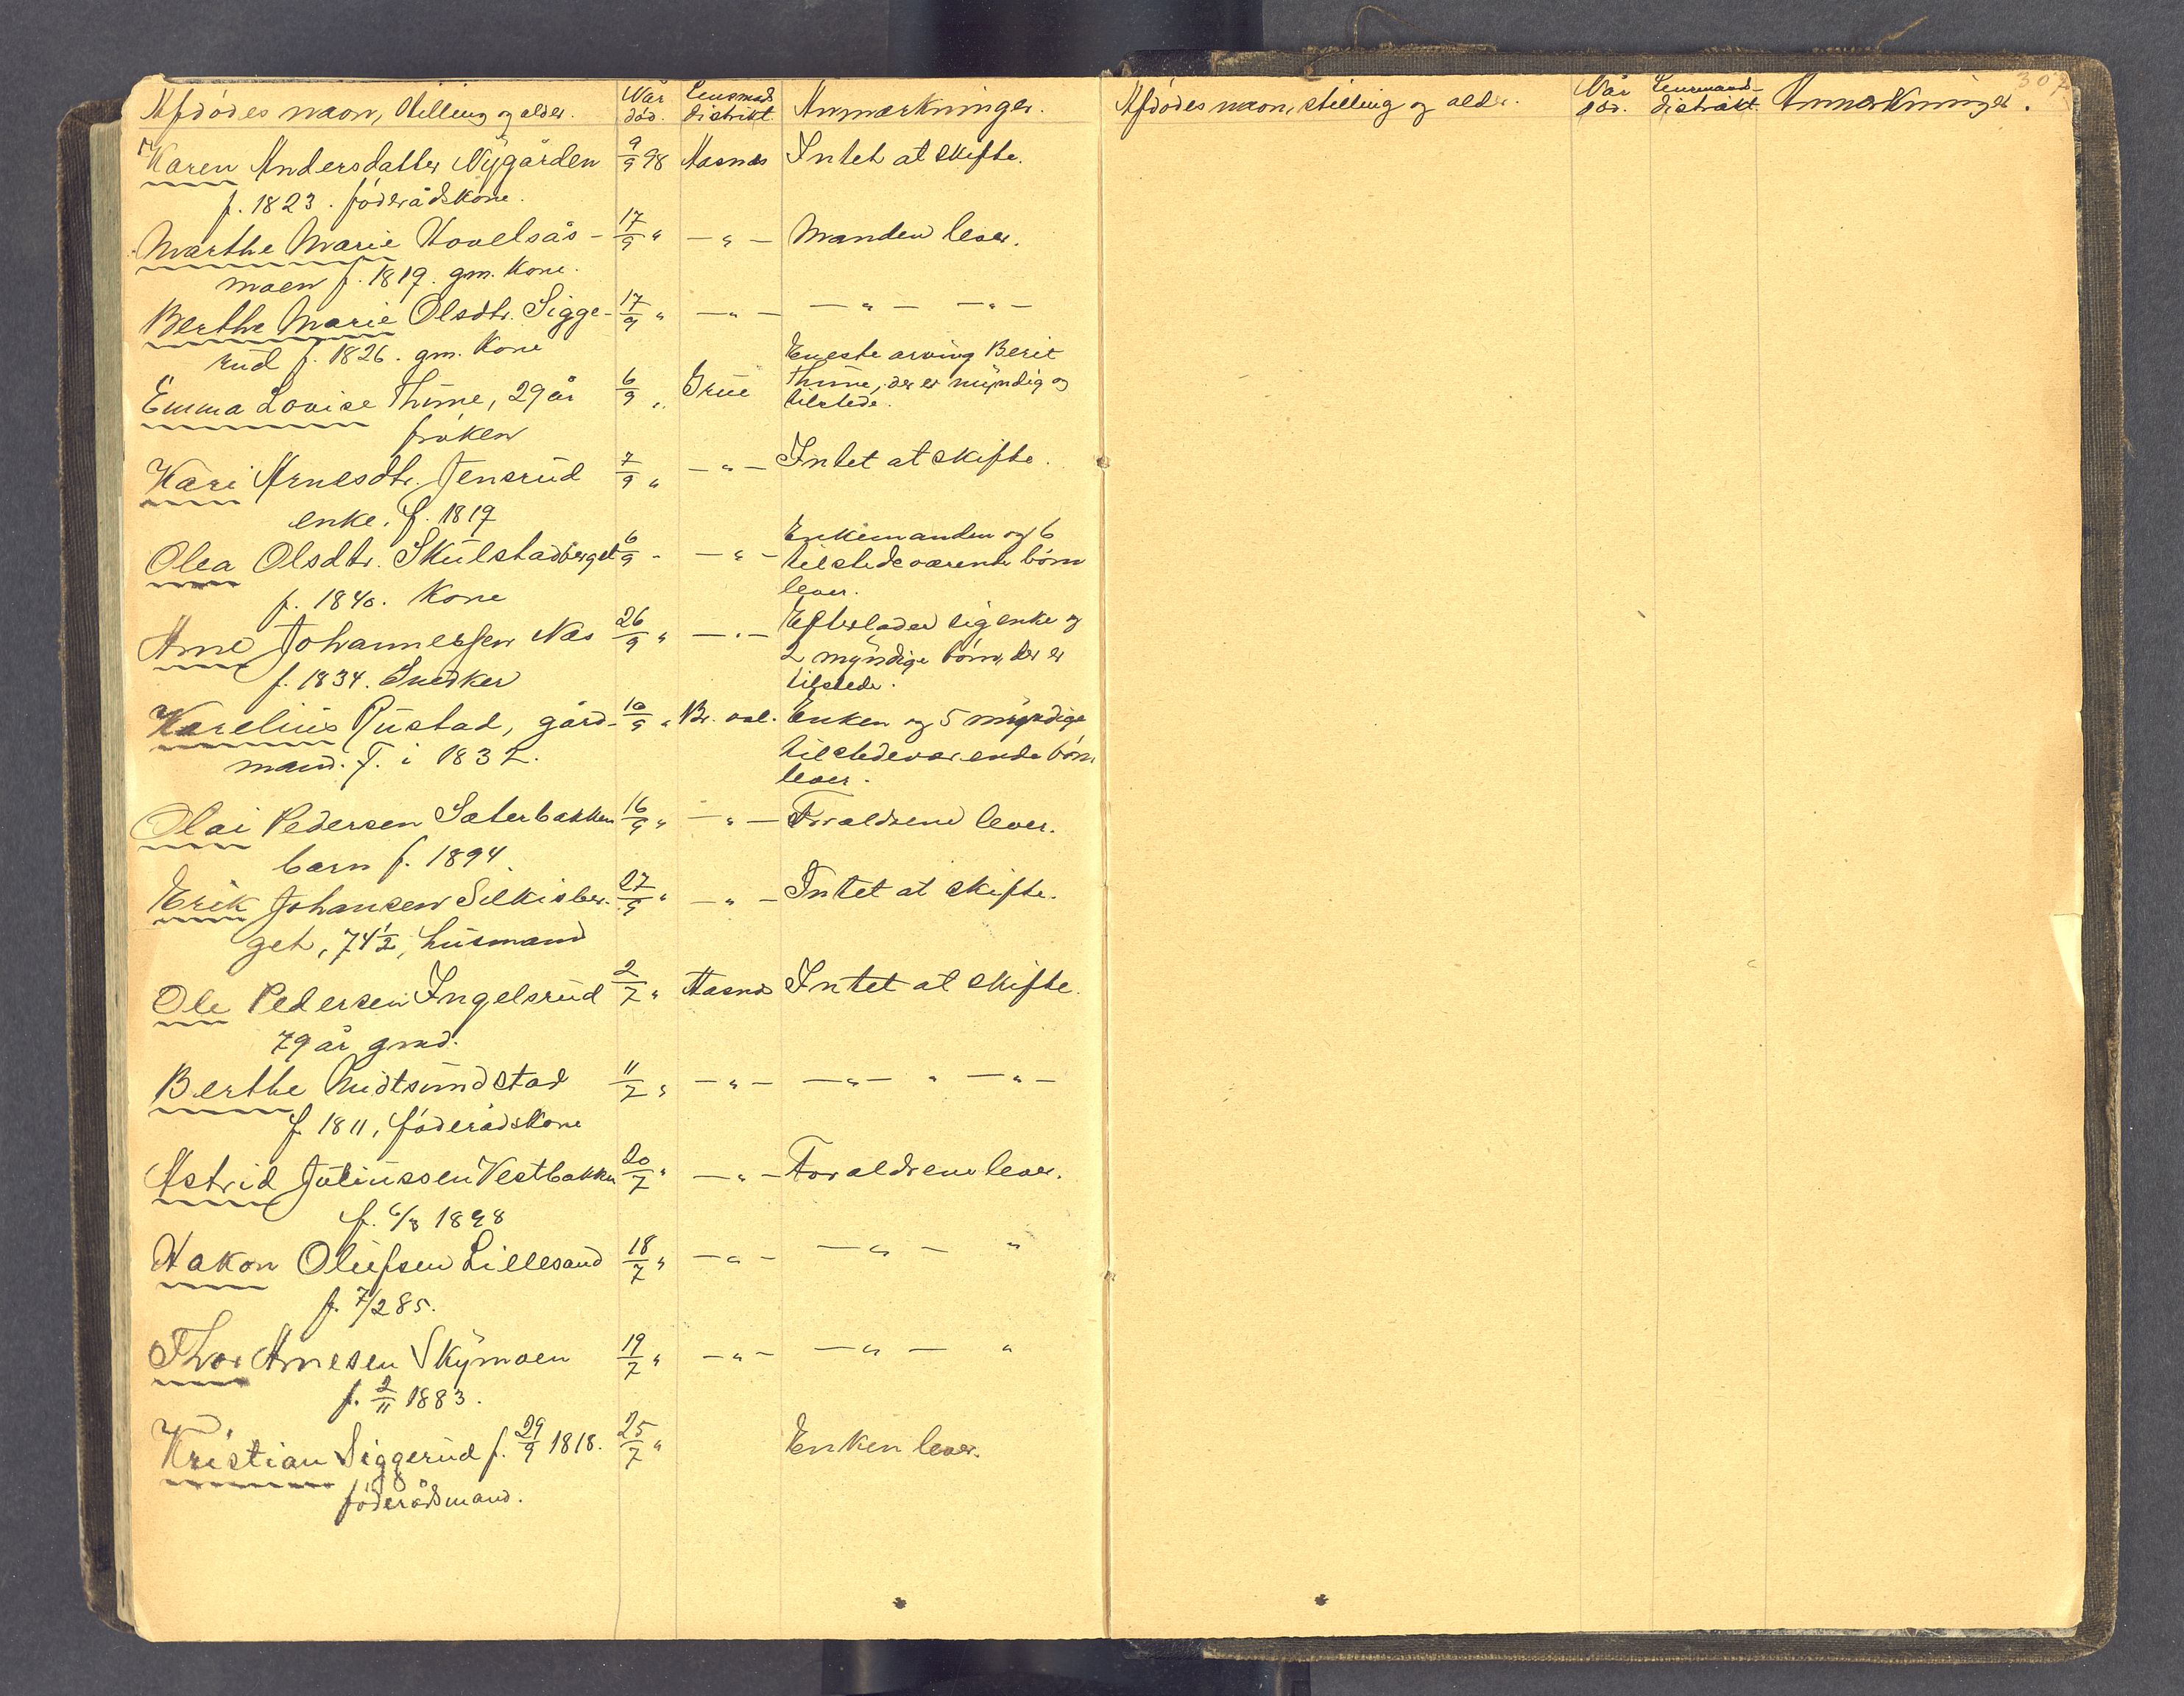 Afdødes navn, stilling og alder. Når død. Lensmands distrikt. Anmærkninger.
Karen Andersdatter Nygården 9/9 98 Aasnes Intet at skifte.
f. 1823. føderådskone.
Marthe Marie Hovelsås- 17/9 " — " — Manden lever.
moen f. 1819. gm. Kone.
Berthe Marie Olsdtr. Sigge- 17/9 " — " — — " — — " —
rud f. 1826. gm. Kone
Emma Lovise Thune, 29 år 6/9 " Grue Eneste arving Berit
Thune, der er myndig og
tilstede.
frøken
Kari Arnesdtr. Jensrud 7/9 " — " — Intet at skifte.
enke. f. 1819
Olea Olsdtr. Skulstadberget 6/9 - — " — Enkemanden og 6
tilstedeværende børn
lever.
f. 1840. Kone
Arne Johannessen Næs 26/9 " — " — Efterlader sig enke og
2 myndige børn, der er
tilstede.
f. 1834. Snedker
Karelius Rustad, gård- 10/9 " Br. val. Enken og 5 myndige
mand. F. i 1832. tilstedeværende børn
lever.
Olai Pedersen Sæterbakken 16/9 " — " — Forældrene lever.
barn f. 1894.
Erik Johansen Silkisber- 27/9 " — " — Intet at skifte.
get, 74 1/2, husmand
Ole Pedersen Ingelsrud 2/7 " Aasnes Intet at skifte.
79 år gmd.
Berthe Midtsundstad 11/7 " — " — — " — " — " —
f. 1811, føderådskone
Astrid Juliussen Vestbakken 20/7 " — " — Forældrene lever.
f. 6/3 1898
Hakon Olufsen Lillesand 18/7 " — " — — " — "
f. 7/2 85.
Thor Arnesen Skymoen 19/7 " — " — — " — "
f. 2/11 1883.
Kristian Siggerud f. 29/9 1818. 25/7 " Enken lever.
føderådsmand.
307
Afdødes navn, stilling og alder. Når død. Lensmands- distrikt. Anmærkninger.